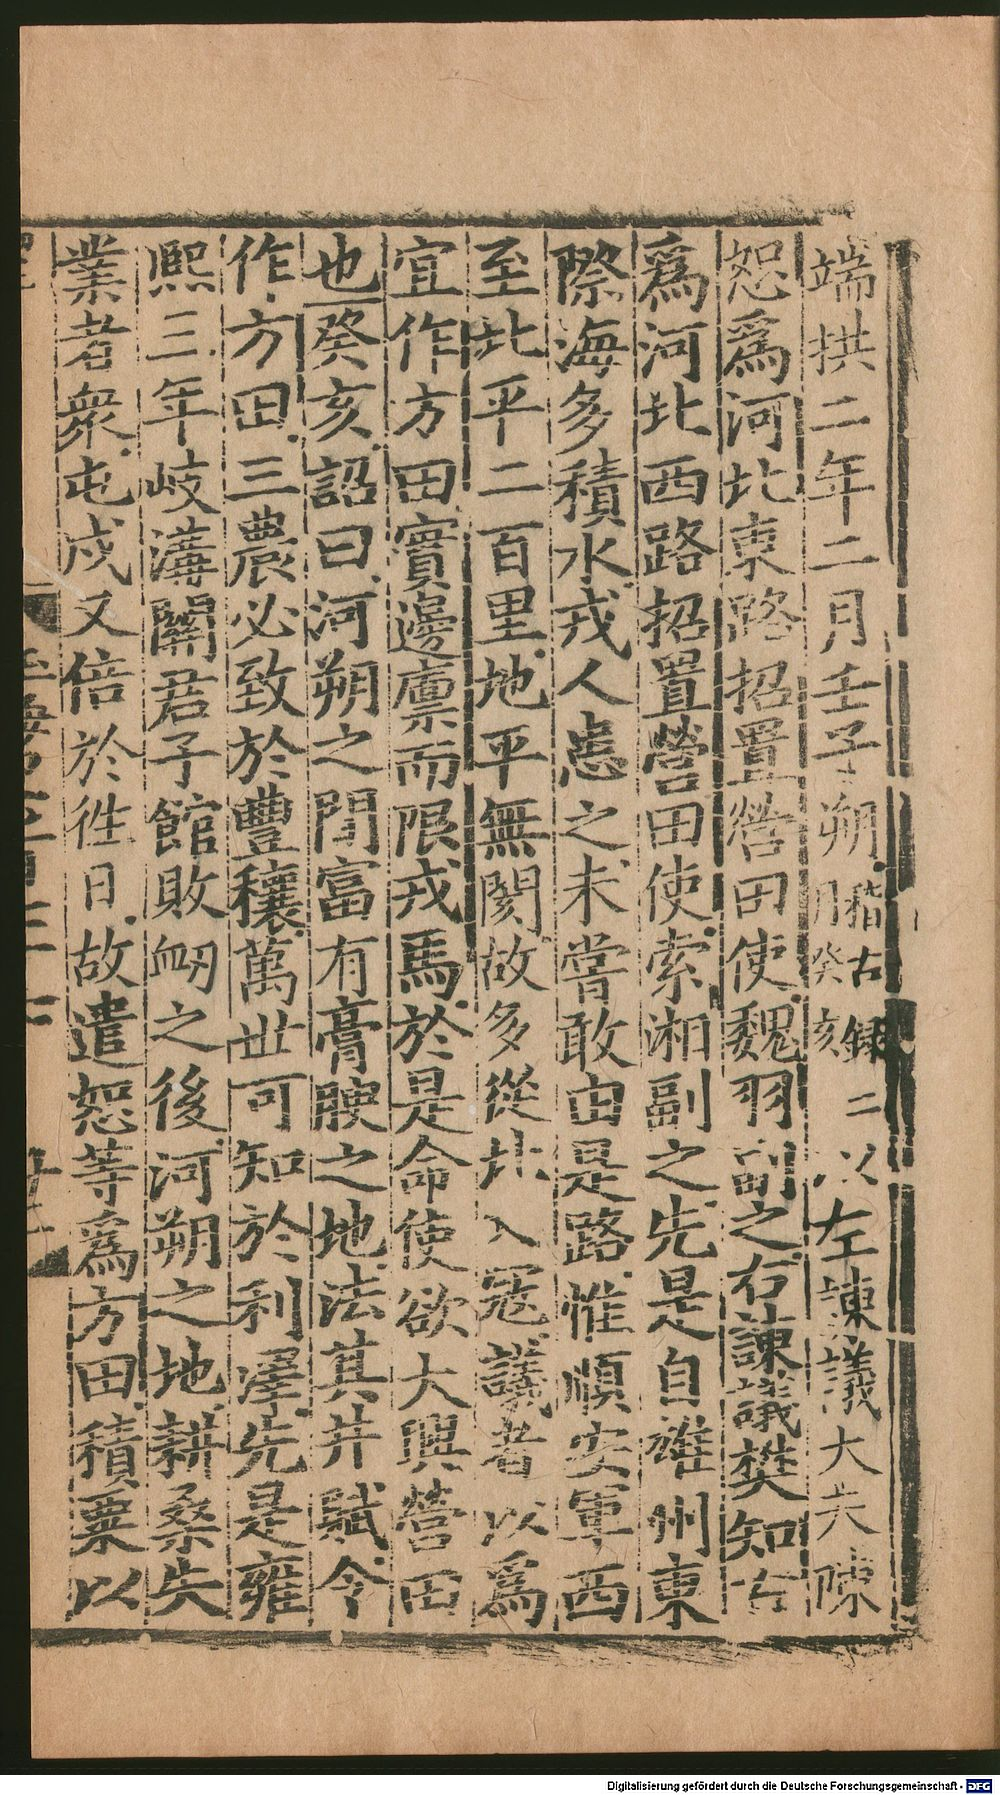 端拱二年二月壬子朔稽古録二月癸亥以左諫議大夫陳
恕爲河北東路招置營田使魏羽副之右諫議樊知古
爲河北西路招置營田使索湘副之先是自雄州東
際海多積水戎人患之未嘗敢由是路惟順安軍西
至北平二百里地平無閡故多從北入寇議者以爲
宜作方田實邊廪而限戎馬於是命使欲大興營田
也癸亥詔曰河朔之間富有膏腴之地法其井賦令
作方田三農必致於豐穰萬世可知於利澤先是雍
熈三年岐溝關君子館敗衂之後河朔之地耕桑失
業者衆屯戍又倍於徃日故遣恕等爲方田積粟以
Digitalisierung gefördert durch die Deutsche Forschungsgemeinschaft - DFG